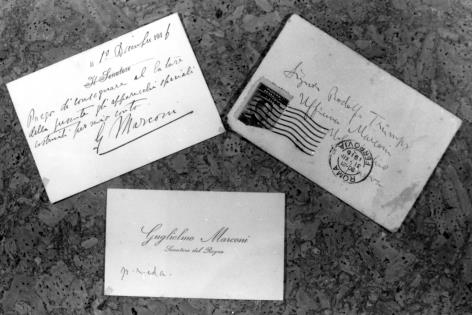 1º Dicembre 1916
Il Senatore
Prego di consegnare al latore
della presente gli apparecchi speciali
costruiti per mio conto
G Marconi
Signor
Officina Marconi
ROMA
FERROVIA
Guglielmo Marconi
Senatore del Regno